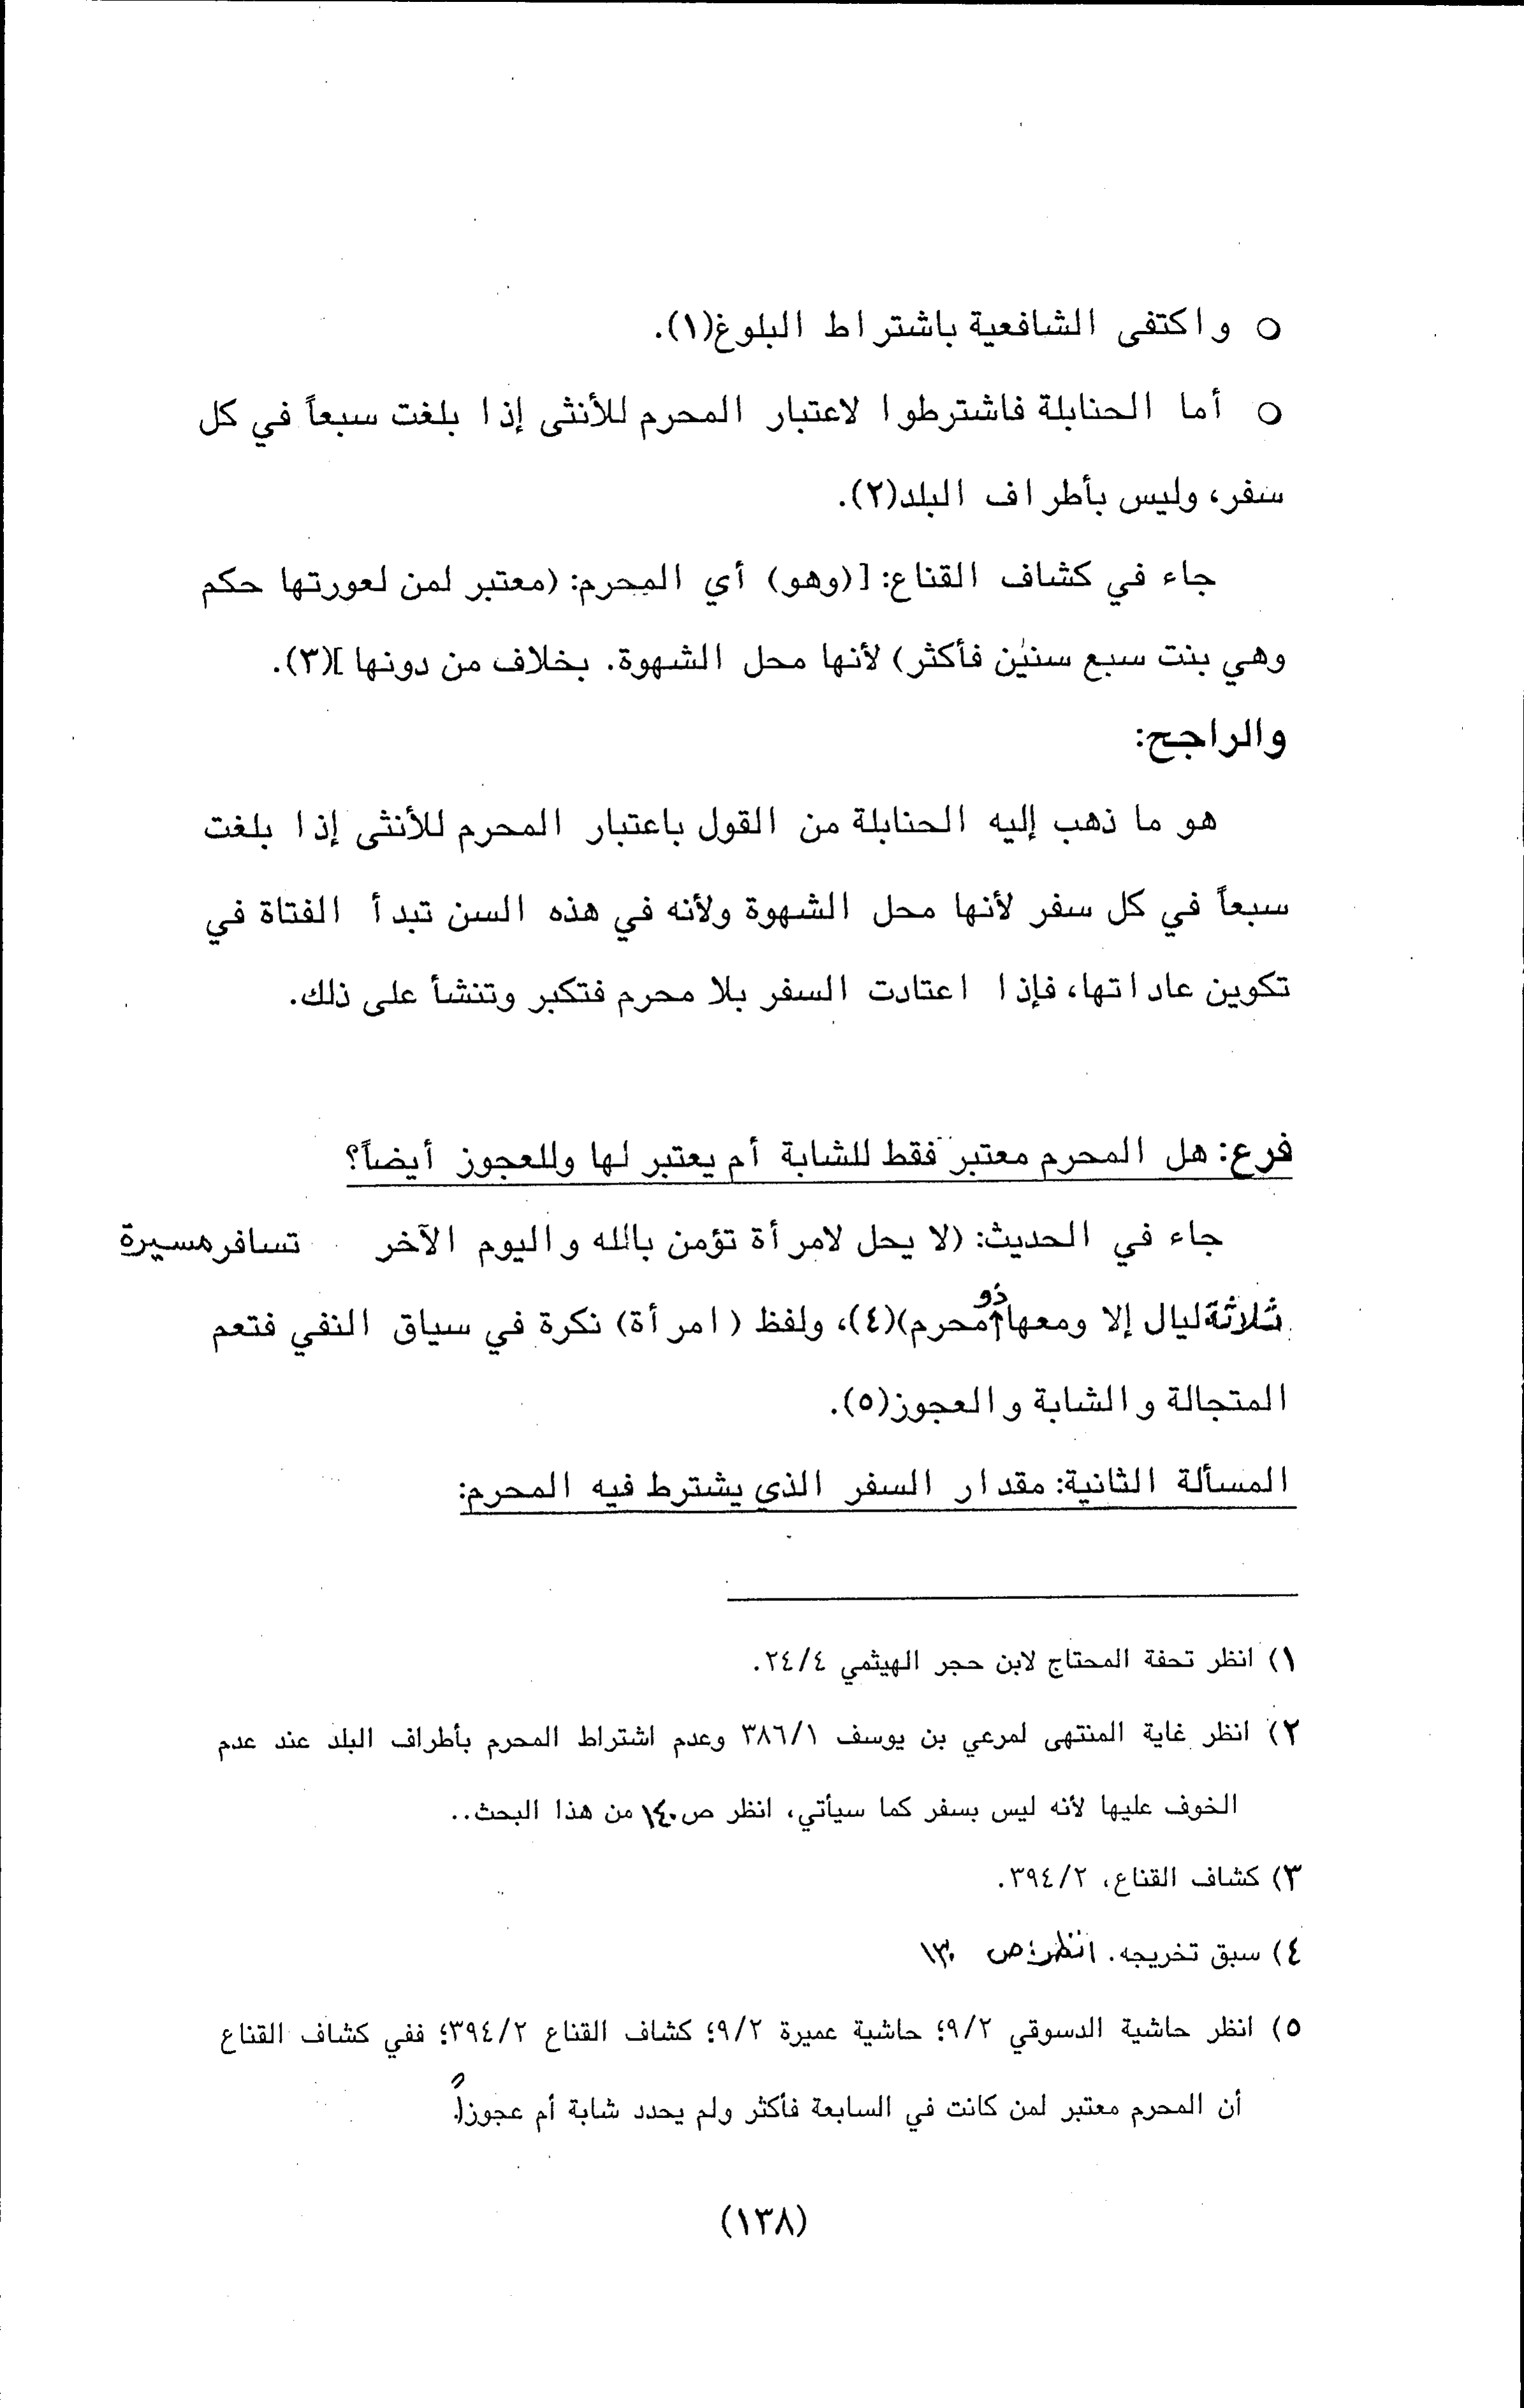 ○ واكتفى الشافعية باشتراط البلوغ(١).
○ أما الحنابلة فاشترطوا لاعتبار المحرم للأنثى إذا بلغت سبعاً في كل
سفر، وليس بأطراف البلد(٢).
جاء في كشاف القناع: [(وهو) أي المحرم: (معتبر لمن لعورتها حكم
وهي بنت سبع سنين فأكثر) لأنها محل الشهوة. بخلاف من دونها](٣).
والراجح:
هو ما ذهب إليه الحنابلة من القول باعتبار المحرم للأنثى إذا بلغت
سبعاً في كل سفر لأنها محل الشهوة ولأنه في هذه السن تبدأ الفتاة في
تكوين عاداتها، فإذا اعتادت السفر بلا محرم فتكبر وتنشأ على ذلك.
فرع: هل المحرم معتبر فقط للشابة أم يعتبر لها وللعجوز أيضاً؟
جاء في الحديث: (لا يحل لامرأة تؤمن بالله واليوم الآخر تسافر مسيرة
ثلاثة ليال إلا ومعها ذو محرم)(٤)، ولفظ (امرأة) نكرة في سياق النفي فتعم
المتجالة والشابة والعجوز(٥).
المسألة الثانية: مقدار السفر الذي يشترط فيه المحرم:
١) انظر تحفة المحتاج لابن حجر الهيثمي ٢٤/٤.
٢) انظر غاية المنتهى لمرعي بن يوسف ٣٨٦/١ وعدم اشتراط المحرم بأطراف البلد عند عدم
الخوف عليها لأنه ليس بسفر كما سيأتي، انظر ص١٤٠ من هذا البحث..
٣) كشاف القناع، ٣٩٤/٢.
٤) سبق تخريجه. انظر: ص ١٣٠
٥) انظر حاشية الدسوقي ٩/٢؛ حاشية عميرة ٩/٢؛ كشاف القناع ٣٩٤/٢؛ ففي كشاف القناع
أن المحرم معتبر لمن كانت في السابعة فأكثر ولم يحدد شابة أم عجوزاً.
(١٣٨)